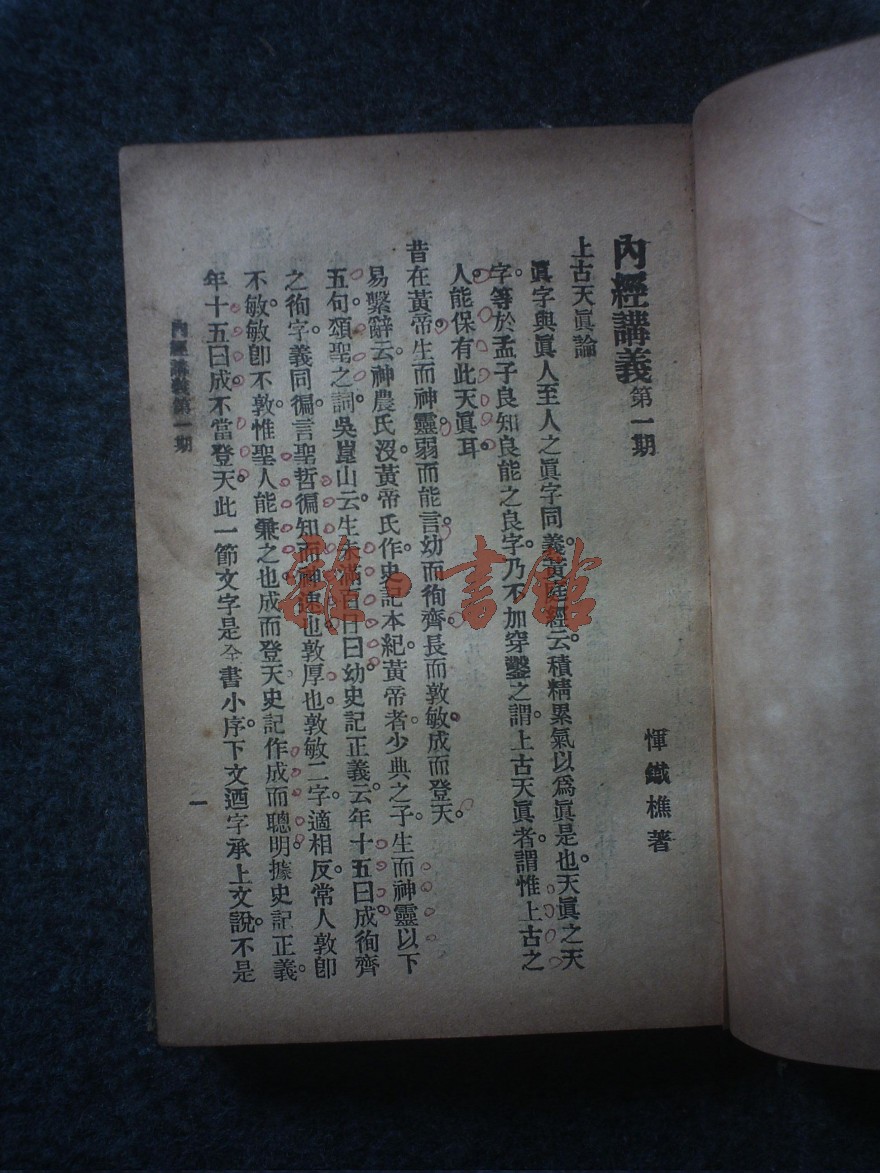 內經講義第一期
惲鐵樵著
上古天眞論
眞字與眞人至人之眞字同義。黃庭經云。積精累氣以爲眞是也。天眞之天
字。等於孟子良知良能之良字。乃不加穿鑿之謂。上古天眞者。謂惟上古之
人能保有此天眞耳。
昔在黃帝。生而神靈。弱而能言。幼而徇齊。長而敦敏。成而登天。
易繫辭云。神農氏沒。黃帝氏作。史記本紀。黃帝者。少典之子。生而神靈以下
五句。頌聖之詞。吳崑山云。生未滿百日曰幼。史記正義云。年十五曰成。徇齊
之徇字。義同徧。言聖哲徧知而神速也。敦厚也。敦敏二字。適相反。常人敦卽
不敏。敏卽不敦。惟聖人能兼之也。成而登天。史記作成而聰明。據史記正義。
年十五曰成。不當登天。此一節文字是全書小序。下文迺字承上文說。不是
內經講義第一期
一
雜·書館